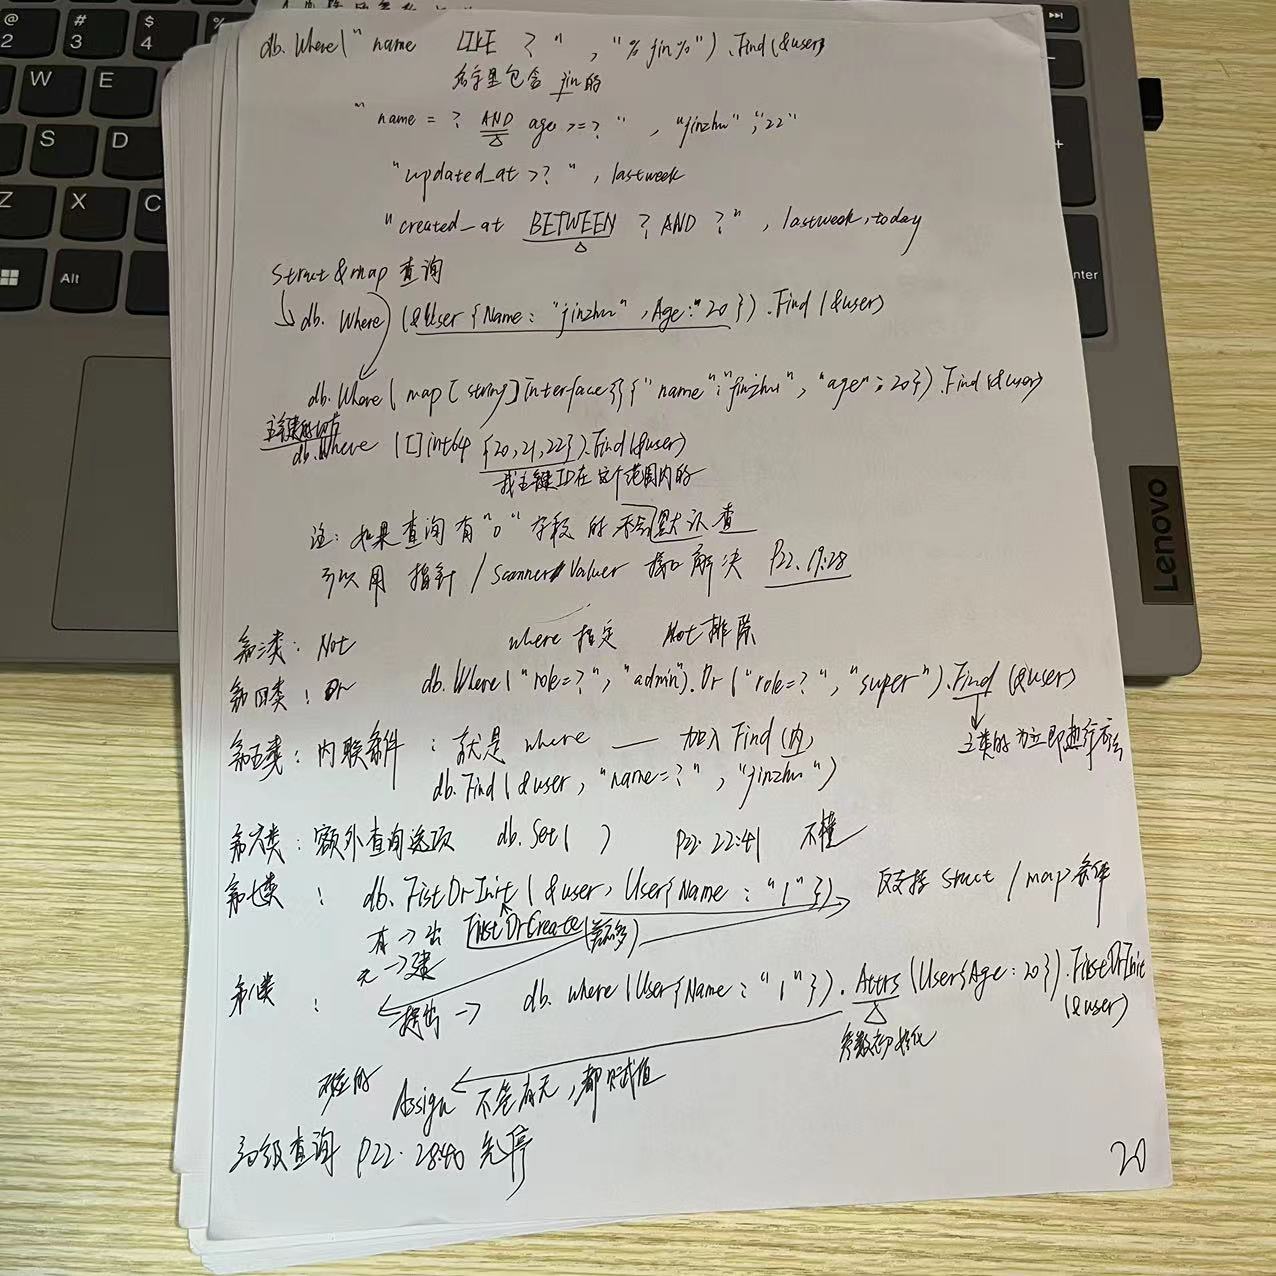 db.Where("name LIKE ?", "%jin%").Find(&user)
名字里包含 jin的
"name = ? AND age >= ?", "jinzhu", "22"
"updated_at > ?", lastweek
"created_at BETWEEN ? AND ?", lastweek, today
Struct & map 查询
db. Where (&User {Name: "jinzhu", Age: "20}).Find (&user)
db.Where( map[string]Interface{}{"name": "jinzhu", "age": 20}).Find(&user)
主键的切片
db.Where ([]int64 {20,21,22}).Find(&user)
找主键ID在这个范围内的
注: 如果查询有"0"字段的不会默认查
可以用 指针 / Scanner Valuer 接口解决 P22. 19:28
第三类: Not where 指定 Not 排除
第四类: Or db.Where("role=?", "admin").Or("role=?", "super").Find (&user)
之类的为立即执行方法
第五类: 内联条件 : 就是 where — 加入 Find(内)
db.Find(&user, "name=?", "jinzhu")
第六类: 额外查询选项 db.Set( ) P22. 22:41 不懂
第七类: db. FistOrInit (&user, User{Name: "1"}) 只支持 struct / map 条件
有→出 FirstOrCreate (差不多)
无→建
第八类: 提出→ db. where (User{Name: "1"}). Attrs (User{Age: 20}).FirstOrInit
(&user)
参数初始化
Assign 不管有无, 都赋值
高级查询 P22. 28:40 先停
20
Lenovo
@
2
#
3
$
4
W
E
S
D
Z
X
C
Alt
+
nter